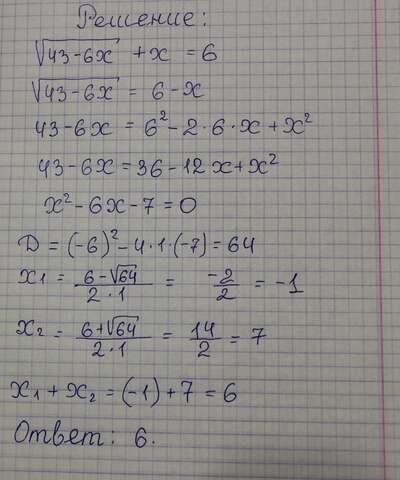 Решение:
√43-6x + x = 6
√43-6x = 6-x
43-6x = 6²-2·6·x+x²
43-6x=36-12x+x²
x²-6x-7=0
D=(-6)²-4·1·(-7)=64
x₁ = (6-√64)/(2·1) = -2/2 = -1
x₂ = (6+√64)/(2·1) = 14/2 = 7
x₁+x₂=(-1)+7=6
Ответ: 6.